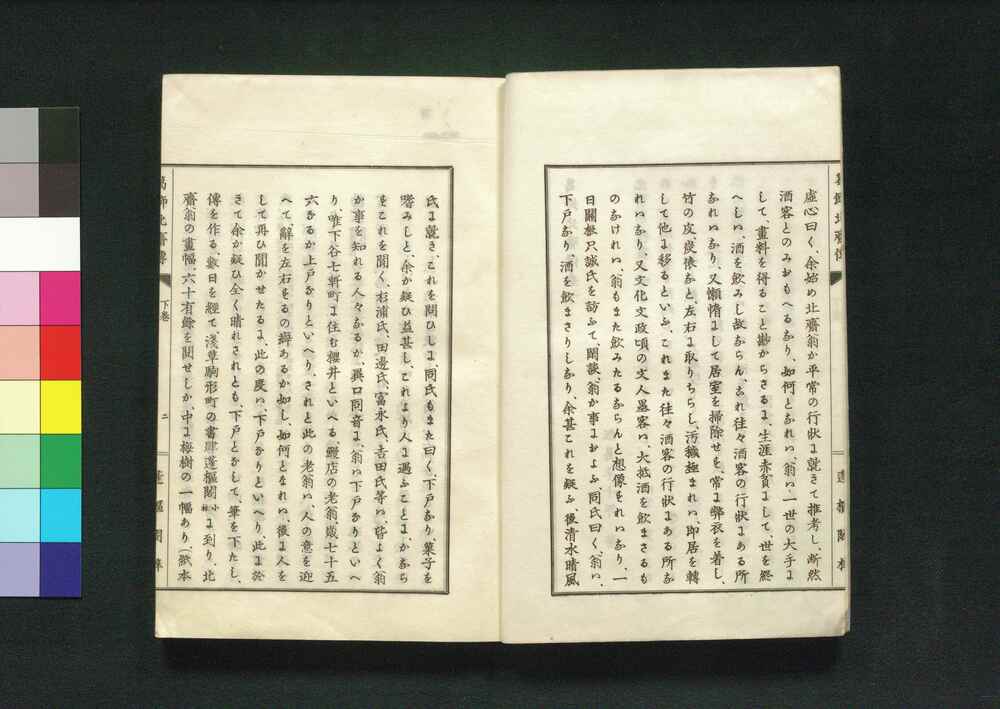 虚心曰く、余始め北齋翁か平常の行狀に就きて推考し、斷然
酒客とのみおもへるなり、如何となれハ、翁ハ、一世の大手に
して、畫料を得ること尠からさるに、生涯赤貧にして、世を終
へしハ、酒を飲みし故ならん、なれ往々酒客の行狀にある所
なれハなり、又懶惰にして居室を掃除せを、常に弊衣を着し、
竹の皮、炭俵なと左右に取りちらし、汚穢極まれハ、即居を轉
して他に移るといふ、これまた往々酒客の行狀にある所な
れハなり、又文化文政頃の文人墨客ハ、大抵酒を飲まさるも
のなけれハ、翁もまた飲みたるならんと想像をれハなり、一
日關根只誠氏を訪ふて、閑談、翁か事におよふ、同氏曰く、翁ハ、
下戸なり、酒を飲まさりしなり、余甚これを疑ふ、後清水晴風
氏に就き、これを問ひしに、同氏もまた曰く、下戸なり、菓子を
嗜みしと、余か疑ひ益甚し、これより人に遇ふことに、かなら
をこれを聞く、杉浦氏、田邊氏、富永氏、吉田氏等ハ、皆よく翁
か事を知れる人々なるか、異口同音に、翁ハ下戸なりといへ
り、唯下谷七軒町に住む櫻井といへる、鰻店の老翁、歳七十五
六なるか上戸なりといへり、されと此の老翁ハ、人の意を迎
へて、辭を左右をるの癖あるか如し、如何となれハ、後に人を
して再ひ聞かせたるに、此の度ハ、下戸なりといへり、此に於
きて余か疑ひ全く晴れされとも、下戸とかして、筆を下たし、
傳を作る、數日を經て、淺草駒形町の書肆蓬樞閣小林に到り、北
齋翁の畫幅、六十有餘を閲せしか、中に梅樹の一幅あり、(紙本
葛飾北齋傳
下卷
二
蓬樞閣梓